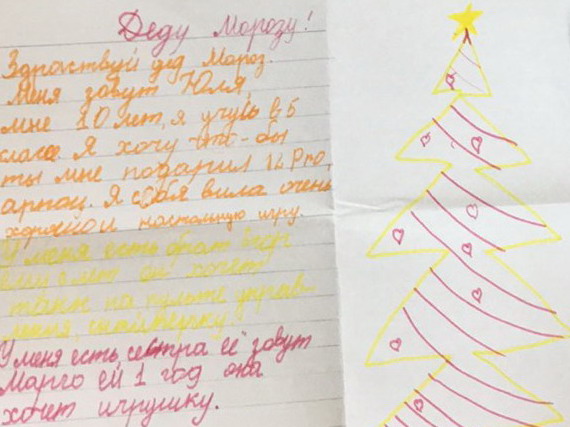 Деду Морозу!
Здравствуй дед Мороз.
Меня зовут Юля,
мне 10 лет, я учусь в 5
класе. Я хочу что-бы
ты мне подарил 12 Pro,
я себя вила очень
хорошо и настольную игру.
У меня есть брат
лет он хочет
танк на пульте управ-
ления,
У меня есть сестра её зовут
Марго ей 1 год она
хочет игрушку.